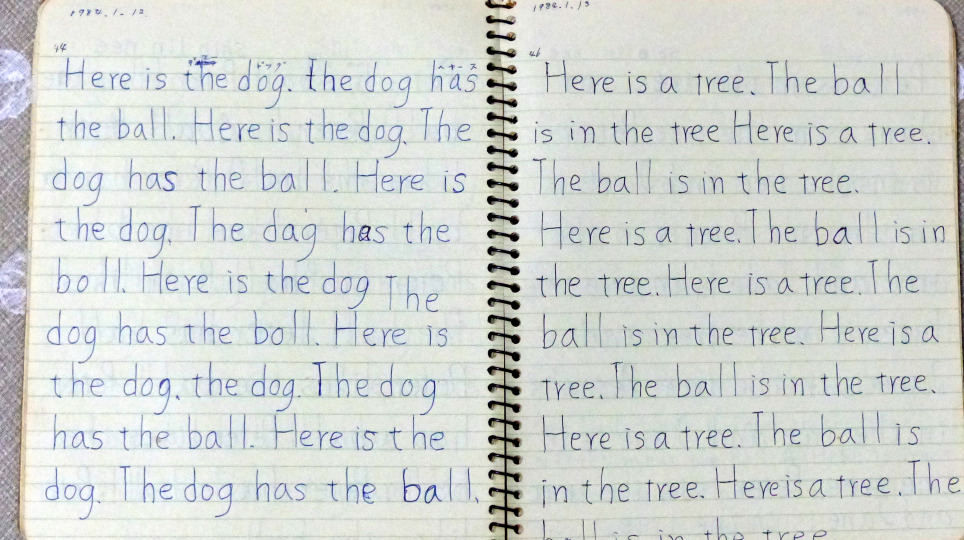 1982.1.12
44
Here is the dog. The dog has
the ball. Here is the dog. The
dog has the ball. Here is
the dog. The dag has the
boll. Here is the dog The
dog has the boll. Here is
the dog. the dog. The dog
has the ball. Here is the
dog. The dog has the ball.
46
Here is a tree. The ball
is in the tree Here is a tree.
The ball is in the tree.
Here is a tree. The ball is in
the tree. Here is a tree. The
ball is in the tree. Here is a
tree. The ball is in the tree.
Here is a tree. The ball is
in the tree. Here is a tree. The
ball is in the tree